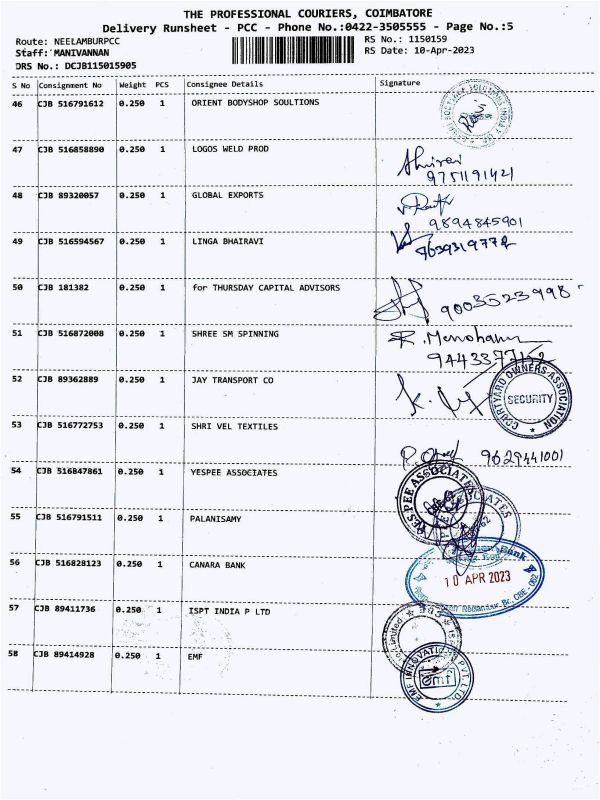 THE PROFESSIONAL COURIERS, COIMBATORE
Delivery Runsheet - PCC - Phone No.:0422-3505555 - Page No.:5
Route: NEELAMBURPCC RS No.: 1150159
Staff: MANIVANNAN RS Date: 10-Apr-2023
DRS No.: DCJB115015905
S No Consignment No Weight PCS Consignee Details Signature
46 CJB 516791612 0.250 1 ORIENT BODYSHOP SOULTIONS
47 CJB 516858890 0.250 1 LOGOS WELD PROD
9751191421
48 CJB 89320057 0.250 1 GLOBAL EXPORTS
9894845901
49 CJB 516594567 0.250 1 LINGA BHAIRAVI 9639319772
50 CJB 181382 0.250 1 for THURSDAY CAPITAL ADVISORS 9003523998
51 CJB 516872008 0.250 1 SHREE SM SPINNING
52 CJB 89362889 0.250 1 JAY TRANSPORT CO
COURTYARD OWNERS ASSOCIATION
SECURITY
53 CJB 516772753 0.250 1 SHRI VEL TEXTILES
9629441001
54 CJB 516847861 0.250 1 YESPEE ASSOCIATES
YES PEE ASSOCIATES
55 CJB 516791511 0.250 1 PALANISAMY
56 CJB 516828123 0.250 1 CANARA BANK
Bank
10 APR 2023
57 CJB 89411736 0.250 1 ISPT INDIA P LTD
Limited
58 CJB 89414928 0.250 1 EMF
EMF INNOVATIONS PVT. LTD.
emf